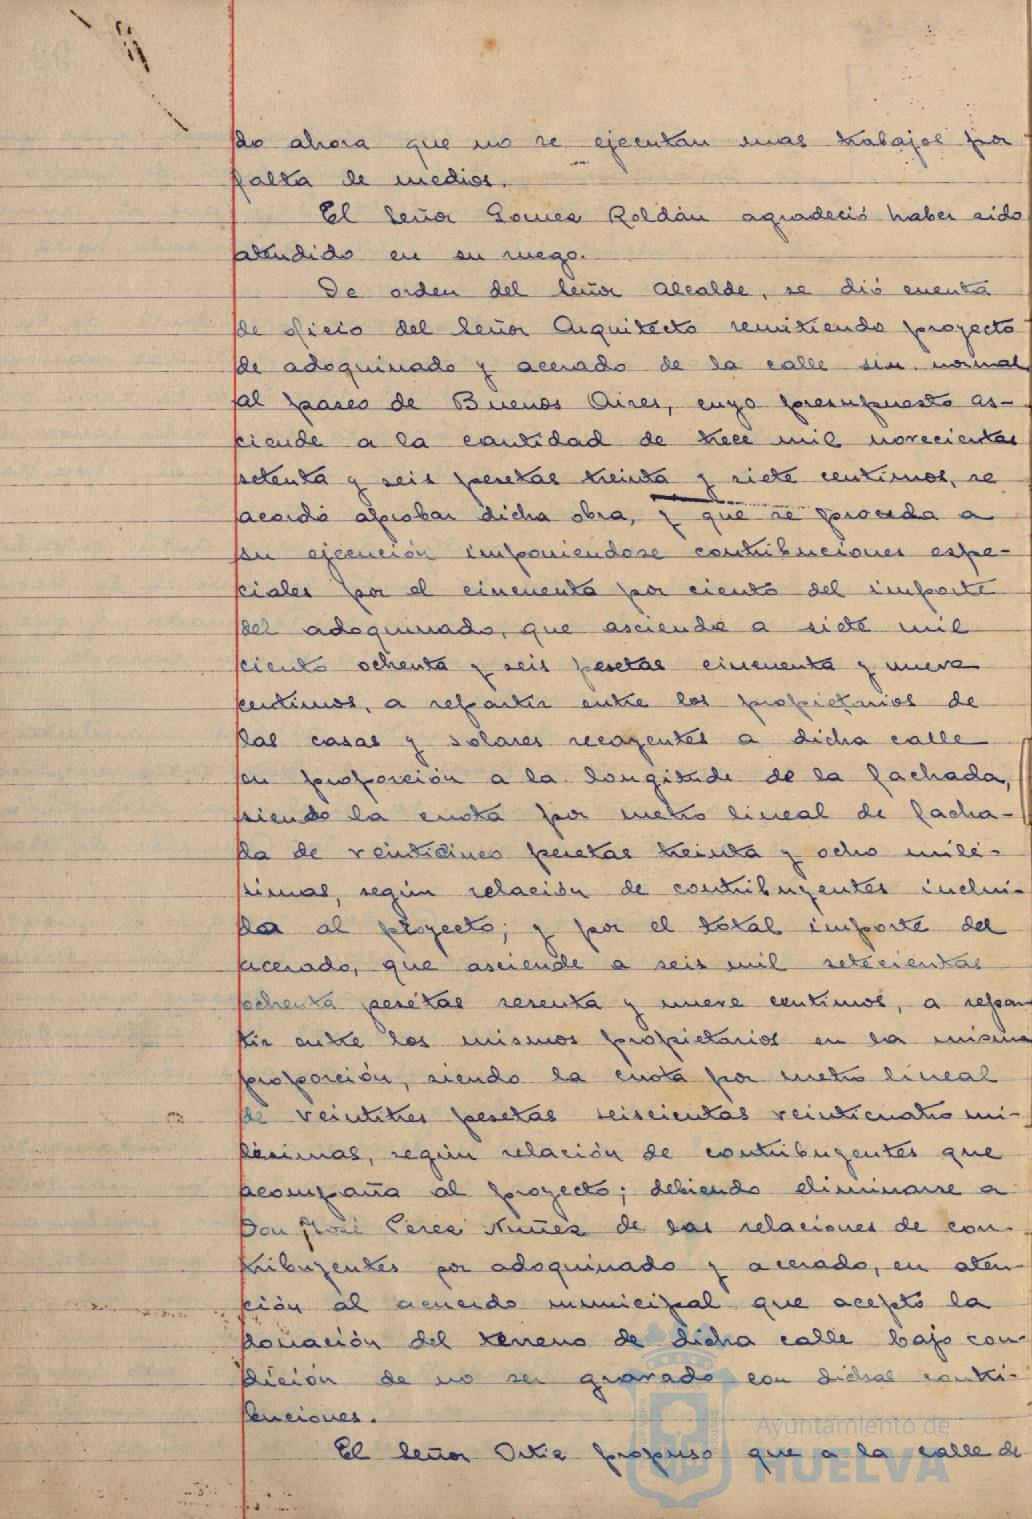 do ahora que no se ejecutan mas trabajos por
falta de medios.
El Señor Gomez Roldán agradeció haber sido
atendido en su ruego.
De orden del Señor Alcalde, se dió cuenta
de oficio del Señor Arquitecto remitiendo proyecto
de adoquinado y acerado de la calle sin normal
al paseo de Buenos Aires, cuyo presupuesto as-
ciende a la cantidad de trece mil novecientas
setenta y seis pesetas treinta y siete centimos, se
acordó aprobar dicha obra, y que se proceda a
su ejecución imponiendose contribuciones espe-
ciales por el cincuenta por ciento del importe
del adoquinado, que asciende a siete mil
ciento ochenta y seis pesetas cincuenta y nueve
centimos, a repartir entre los propietarios de
las casas y solares recayentes a dicha calle
en proporción a la longitud de la fachada,
siendo la cuota por metro lineal de facha-
da de veinticinco pesetas treinta y ocho milé-
simas, según relación de contribuyentes inclui-
da al proyecto; y por el total importe del
acerado, que asciende a seis mil setecientas
ochenta pesetas sesenta y nueve centimos, a repar-
tir entre los mismos propietarios en la misma
proporción, siendo la cuota por metro lineal
de veintitres pesetas seiscientas veinticuatro mi-
lésimas, según relación de contribuyentes que
acompaña al proyecto; debiendo eliminarse a
Don José Perez Nuñez de las relaciones de con-
tribuyentes por adoquinado y acerado, en aten-
ción al acuerdo municipal que aceptó la
donación del terreno de dicha calle bajo con-
dición de no ser gravado con dichas contri-
buciones.
El Señor Ortiz propuso que a la calle de
Ayuntamiento de
HUELVA